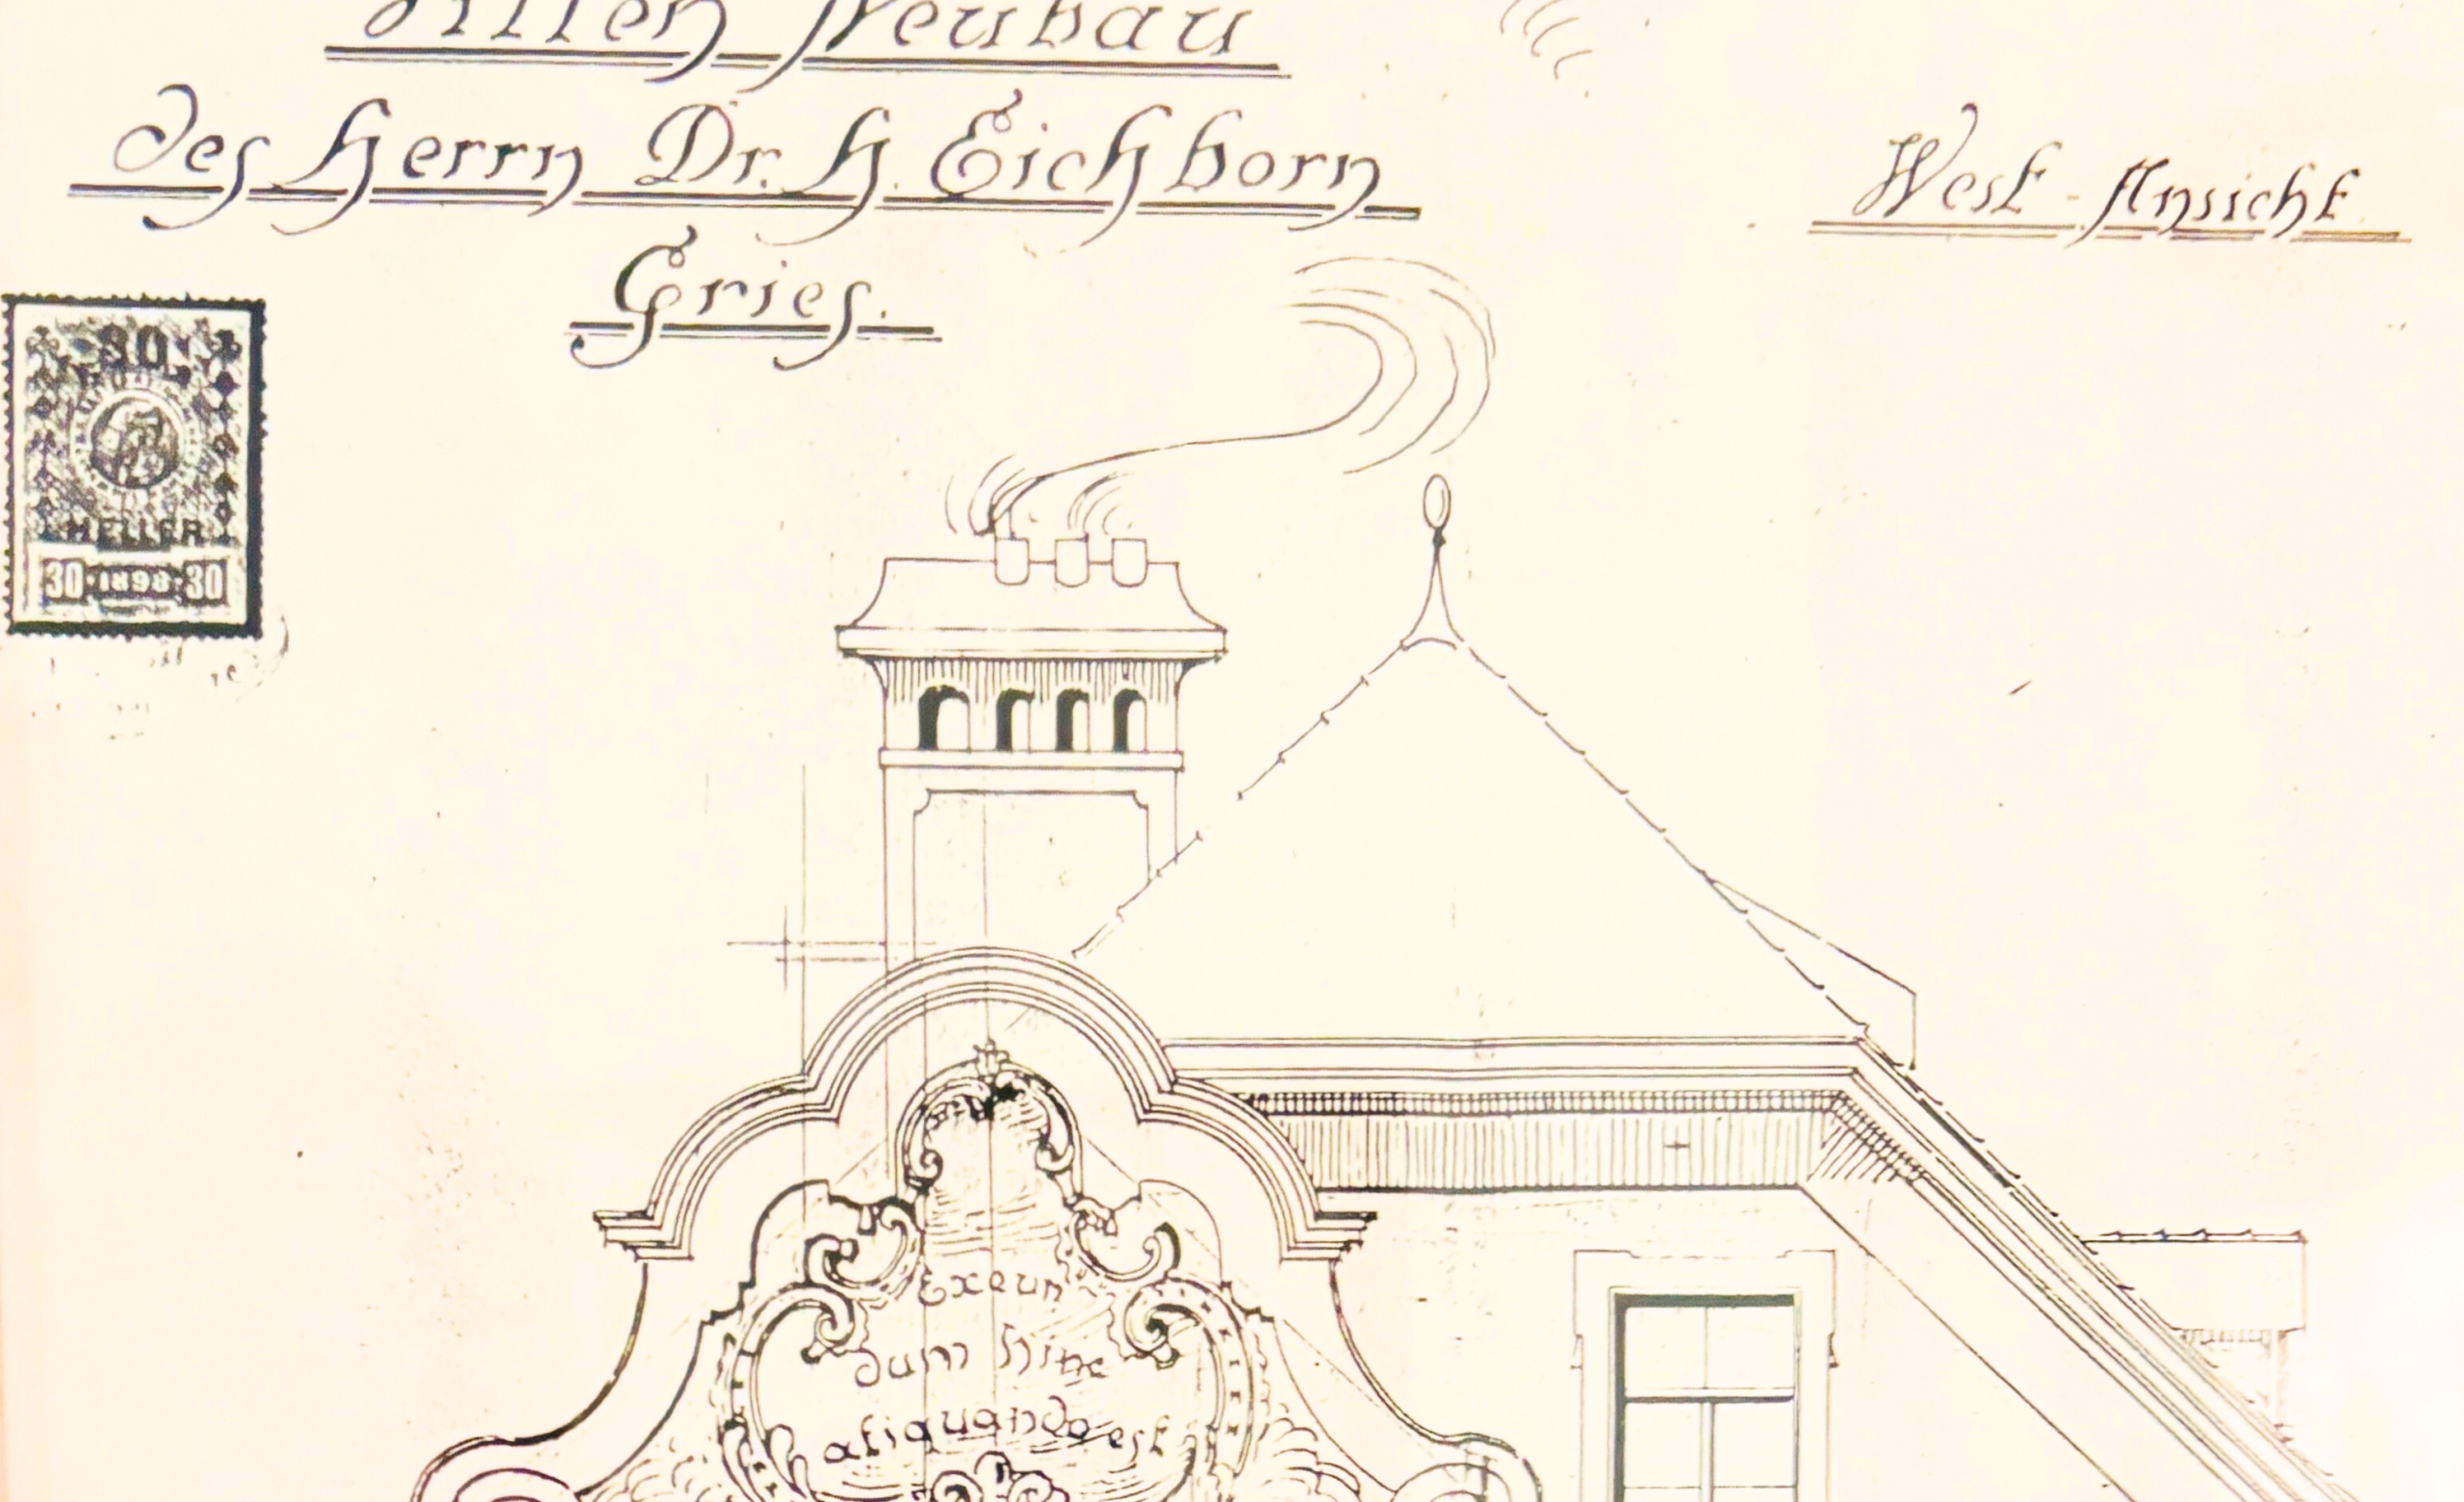 Villen Neubau
des Herrn Dr. H. Eichborn
Gries.
West-Ansicht
30
HELLER
30 · 1898 · 30
Exeun
dum hinc
aliquando est